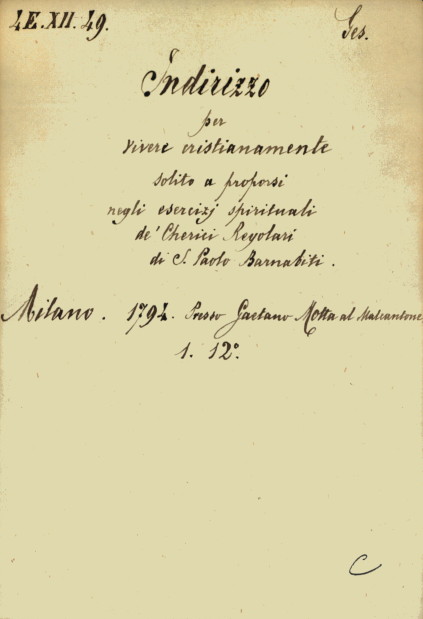 4E.XII.49.
Ges.
Indirizzo
per
vivere cristianamente
solito a proporsi
negli esercizj spirituali
de' Cherici Regolari
di S. Paolo Barnabiti.
Milano. 1794. Presso Gaetano Motta al Malcantone
1. 12°.
C